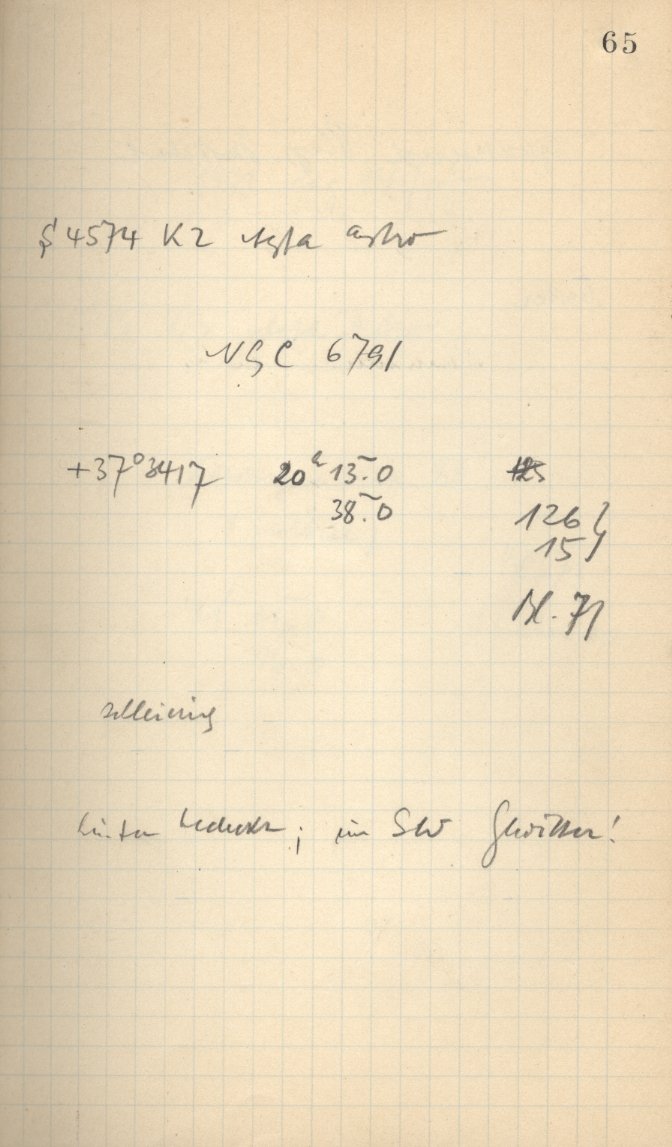 65
S 4574 K2 Agfa astro
NGC 6791
+37°3417 20ʰ 13.ᵐ0
38.ᵐ0
126 }
15 }
Bl. 71
schleierig
hinten bedeckt; im SW Gewitter!